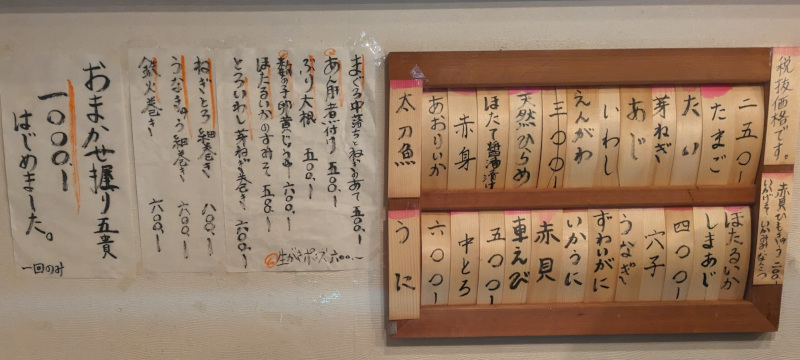 税抜価格です。
赤貝ひもきゅう 二〇〇ー
二五〇ー
たまご
たい
芽ねぎ
あじ
いわし
えんがわ
三〇〇ー
天然ひらめ
ほたて醤油漬け
赤身
あおりいか
太刀魚
ほたるいか
しまあじ
四〇〇ー
穴子
うなぎ
ずわいがに
いかうに
赤貝
車えび
五〇〇ー
中とろ
六〇〇ー
うに
まぐろ中落ちとねぎあて 五〇〇ー
あん肝煮付け 五〇〇ー
ぶり大根 五〇〇ー
数の子卵黄じょうゆ 六〇〇ー
ほたるいかのすみそ 五〇〇ー
とろいわし芽ねぎ巻き 六〇〇ー
生がきポン酢 六〇〇ー
ねぎとろ細巻き 八〇〇ー
うなきゅう細巻き 六〇〇ー
鉄火巻き 六〇〇ー
おまかせ握り五貫
一〇〇〇ー
はじめました。
一回のみ